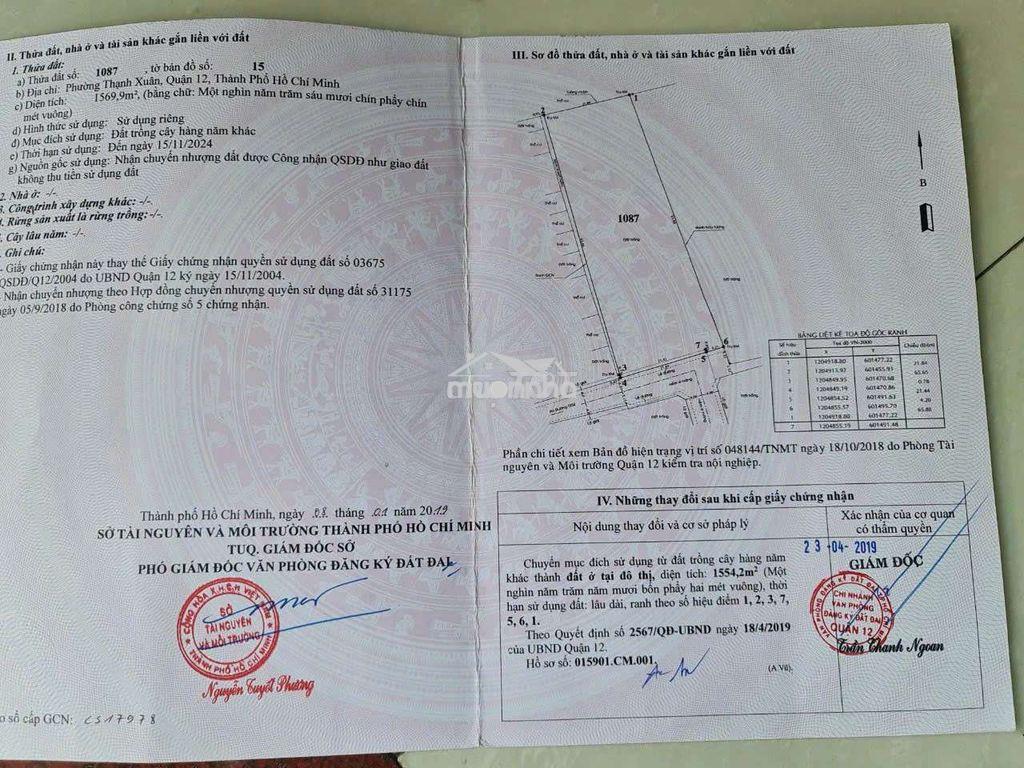 II. Thửa đất, nhà ở và tài sản khác gắn liền với đất
1. Thửa đất:
a) Thửa đất số: 1087 , tờ bản đồ số: 15
b) Địa chỉ: Phường Thạnh Xuân, Quận 12, Thành Phố Hồ Chí Minh
c) Diện tích: 1569,9m², (bằng chữ: Một nghìn năm trăm sáu mươi chín phẩy chín
mét vuông)
d) Hình thức sử dụng: Sử dụng riêng
đ) Mục đích sử dụng: Đất trồng cây hàng năm khác
e) Thời hạn sử dụng: Đến ngày 15/11/2024
g) Nguồn gốc sử dụng: Nhận chuyển nhượng đất được Công nhận QSDĐ như giao đất
không thu tiền sử dụng đất
2. Nhà ở: -/-.
3. Công trình xây dựng khác: -/-.
4. Rừng sản xuất là rừng trồng: -/-.
. Cây lâu năm: -/-.
. Ghi chú:
- Giấy chứng nhận này thay thế Giấy chứng nhận quyền sử dụng đất số 03675
QSDĐ/Q12/2004 do UBND Quận 12 ký ngày 15/11/2004.
- Nhận chuyển nhượng theo Hợp đồng chuyển nhượng quyền sử dụng đất số 31175
ngày 05/9/2018 do Phòng công chứng số 5 chứng nhận.
Thành phố Hồ Chí Minh, ngày 08 tháng 01 năm 2019
SỞ TÀI NGUYÊN VÀ MÔI TRƯỜNG THÀNH PHỐ HỒ CHÍ MINH
TUQ. GIÁM ĐỐC SỞ
PHÓ GIÁM ĐỐC VĂN PHÒNG ĐĂNG KÝ ĐẤT ĐAI
CỘNG HÒA X.H.C.N VIỆT NAM
SỞ
TÀI NGUYÊN
VÀ MÔI TRƯỜNG
THÀNH PHỐ HỒ CHÍ MINH
Nguyễn Tuyết Phương
o sổ cấp GCN: CS17978
III. Sơ đồ thửa đất, nhà ở và tài sản khác gắn liền với đất
1
2
1087
B
3
4
7
5
6
muonnha
BẢNG LIỆT KÊ TỌA ĐỘ GÓC RANH
Số hiệu đỉnh thửa Tọa độ VN-2000 Chiều dài(m)
X Y
1 1204918.80 601477.22
21.84
2 1204913.92 601455.93
65.65
3 1204849.95 601470.68
0.78
4 1204849.19 601470.86
21.44
5 1204854.52 601491.63
4.20
6 1204855.57 601495.70
65.88
1 1204918.80 601477.22
7 1204855.19 601491.48
Phần chi tiết xem Bản đồ hiện trạng vị trí số 048144/TNMT ngày 18/10/2018 do Phòng Tài
nguyên và Môi trường Quận 12 kiểm tra nội nghiệp.
IV. Những thay đổi sau khi cấp giấy chứng nhận
Nội dung thay đổi và cơ sở pháp lý
Xác nhận của cơ quan
có thẩm quyền
Chuyển mục đích sử dụng từ đất trồng cây hàng năm
khác thành đất ở tại đô thị, diện tích: 1554,2m² (Một
nghìn năm trăm năm mươi bốn phẩy hai mét vuông), thời
hạn sử dụng đất: lâu dài, ranh theo số hiệu điểm 1, 2, 3, 7,
5, 6, 1.
Theo Quyết định số 2567/QĐ-UBND ngày 18/4/2019
của UBND Quận 12.
Hồ sơ số: 015901.CM.001.
(A Vũ).
23-04-2019
GIÁM ĐỐC
CHI NHÁNH
VĂN PHÒNG
ĐĂNG KÝ ĐẤT ĐAI
QUẬN 12
Trần Thanh Ngoan